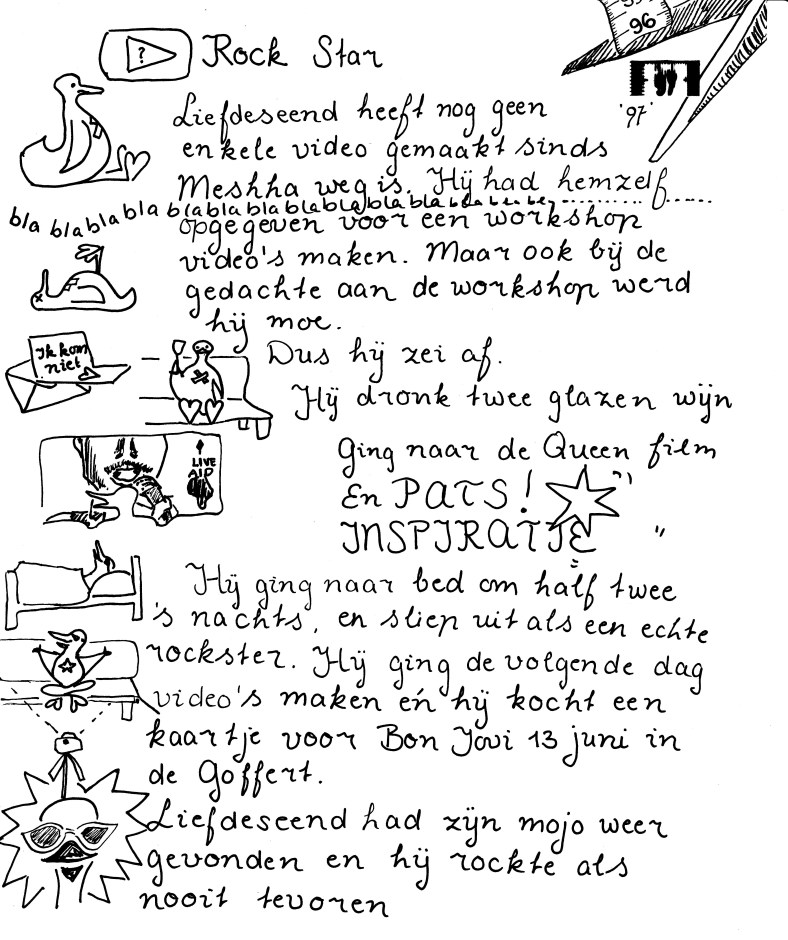 96
? Rock Star
97
'97'
Liefdeseend heeft nog geen
enkele video gemaakt sinds
Meshha weg is. Hij had hemzelf
bla blablabla blabla blablablablabla bla bla bla
opgegeven voor een workshop
video's maken. Maar ook bij de
gedachte aan de workshop werd
hij moe.
Ik kom
niet
Dus hij zei af.
Hij dronk twee glazen wijn
Ging naar de Queen film
LIVE
AID
En PATS!
INSPIRATIE
Hij ging naar bed om half twee
's nachts, en sliep uit als een echte
rockster. Hij ging de volgende dag
video's maken én hij kocht een
kaartje voor Bon Jovi 13 juni in
de Goffert.
Liefdeseend had zijn mojo weer
gevonden en hij rockte als
nooit tevoren